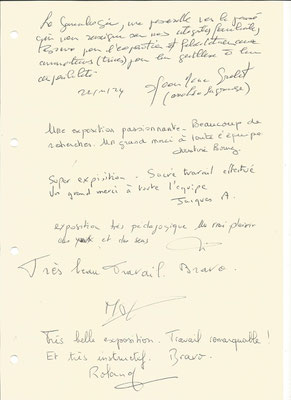 La Généalogie, une passerelle vers le passé
qui nous renseigne sur nos
Bravo pour l'exposition et félicitations aux
animateurs (trices) pour leur gentillesse et leur
disponibilité
22/11/24 Jean Marc
Une exposition passionnante - Beaucoup de
recherches. Un grand merci à toute l'équipe
Super exposition. Sacré travail effectué
Un grand merci à toute l'équipe
Jacques A.
exposition très pédagogique du vrai plaisir
des yeux et du sens
Très beau Travail. Bravo.
Très belle exposition. Travail remarquable!
Et très instructif. Bravo.
Roland